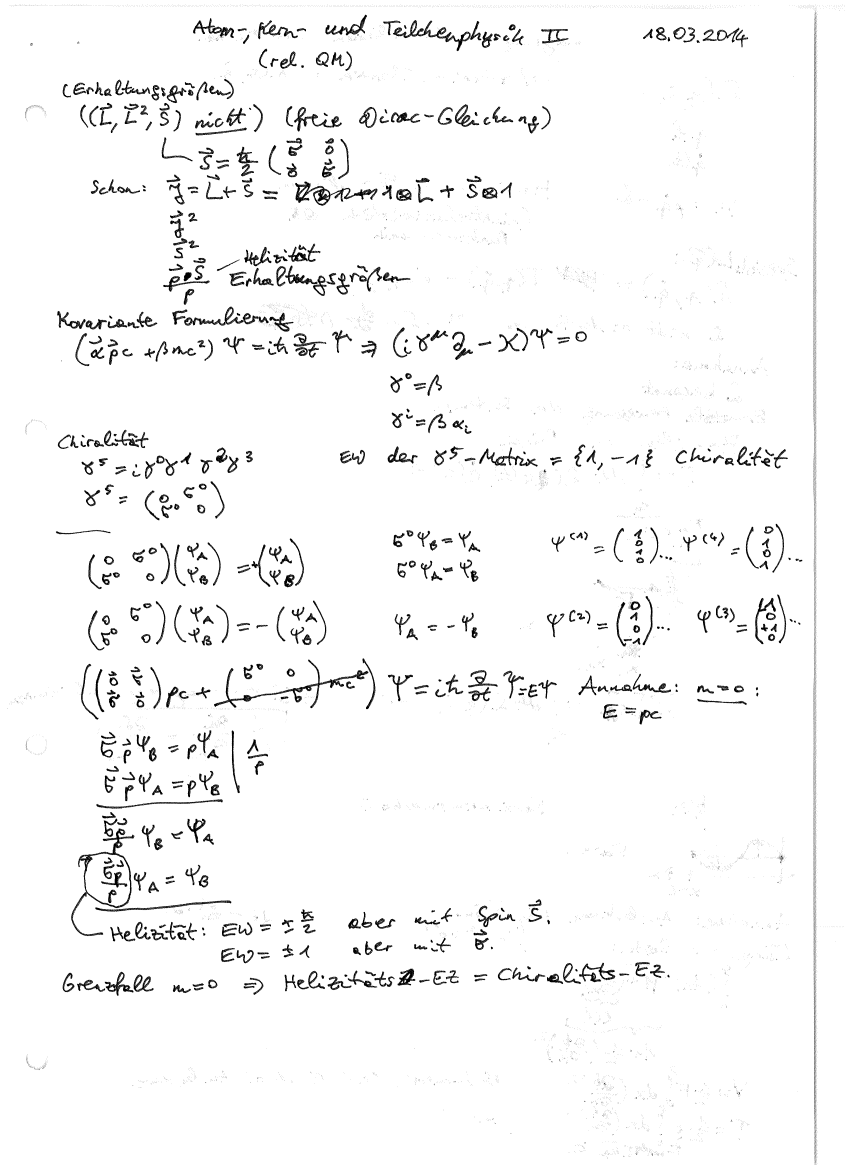 Atom-, Kern- und Teilchenphysik II 18.03.2014
(rel. QM)
(Erhaltungsgrößen)
((L⃗, L⃗², S⃗) nicht) (freie Dirac-Gleichung)
S⃗ = ħ/2 (σ⃗ 0⃗ / 0⃗ σ⃗)
Schon: J⃗ = L⃗ + S⃗ = 1⊗L⃗ + S⃗⊗1
J⃗²
S⃗²
p⃗•S⃗/p Helizität
Erhaltungsgrößen
Kovariante Formulierung
(α⃗p⃗c + βmc²) Ψ = iħ ∂/∂t Ψ ⇒ (iγ^μ ∂_μ − ϰ)Ψ = 0
γ⁰ = β
γⁱ = β αᵢ
Chiralität
γ⁵ = iγ⁰γ¹γ²γ³ EW der γ⁵-Matrix = {1, −1} Chiralität
γ⁵ = (0 σ⁰ / σ⁰ 0)
(0 σ⁰ / σ⁰ 0)(Ψ_A / Ψ_B) = +(Ψ_A / Ψ_B) σ⁰Ψ_B = Ψ_A σ⁰Ψ_A = Ψ_B Ψ⁽¹⁾ = (1 / 0 / 1 / 0)... Ψ⁽⁴⁾ = (0 / 1 / 0 / 1)...
(0 σ⁰ / σ⁰ 0)(Ψ_A / Ψ_B) = −(Ψ_A / Ψ_B) Ψ_A = −Ψ_B Ψ⁽²⁾ = (0 / 1 / 0 / −1)... Ψ⁽³⁾ = (−1 / 0 / +1 / 0)...
((0⃗ σ⃗ / σ⃗ 0⃗) p⃗c + (σ⁰ 0 / 0 −σ⁰) mc²) Ψ = iħ ∂/∂t Ψ = EΨ Annahme: m=0:
E = pc
σ⃗ p⃗ Ψ_B = pΨ_A | 1/p
σ⃗ p⃗ Ψ_A = pΨ_B
σ⃗p⃗/p Ψ_B = Ψ_A
σ⃗p⃗/p Ψ_A = Ψ_B
Helizität: EW = ± ħ/2 aber mit Spin S⃗.
EW = ± 1 aber mit σ⃗.
Grenzfall m=0 ⇒ Helizitäts-EZ = Chiralitäts-EZ.